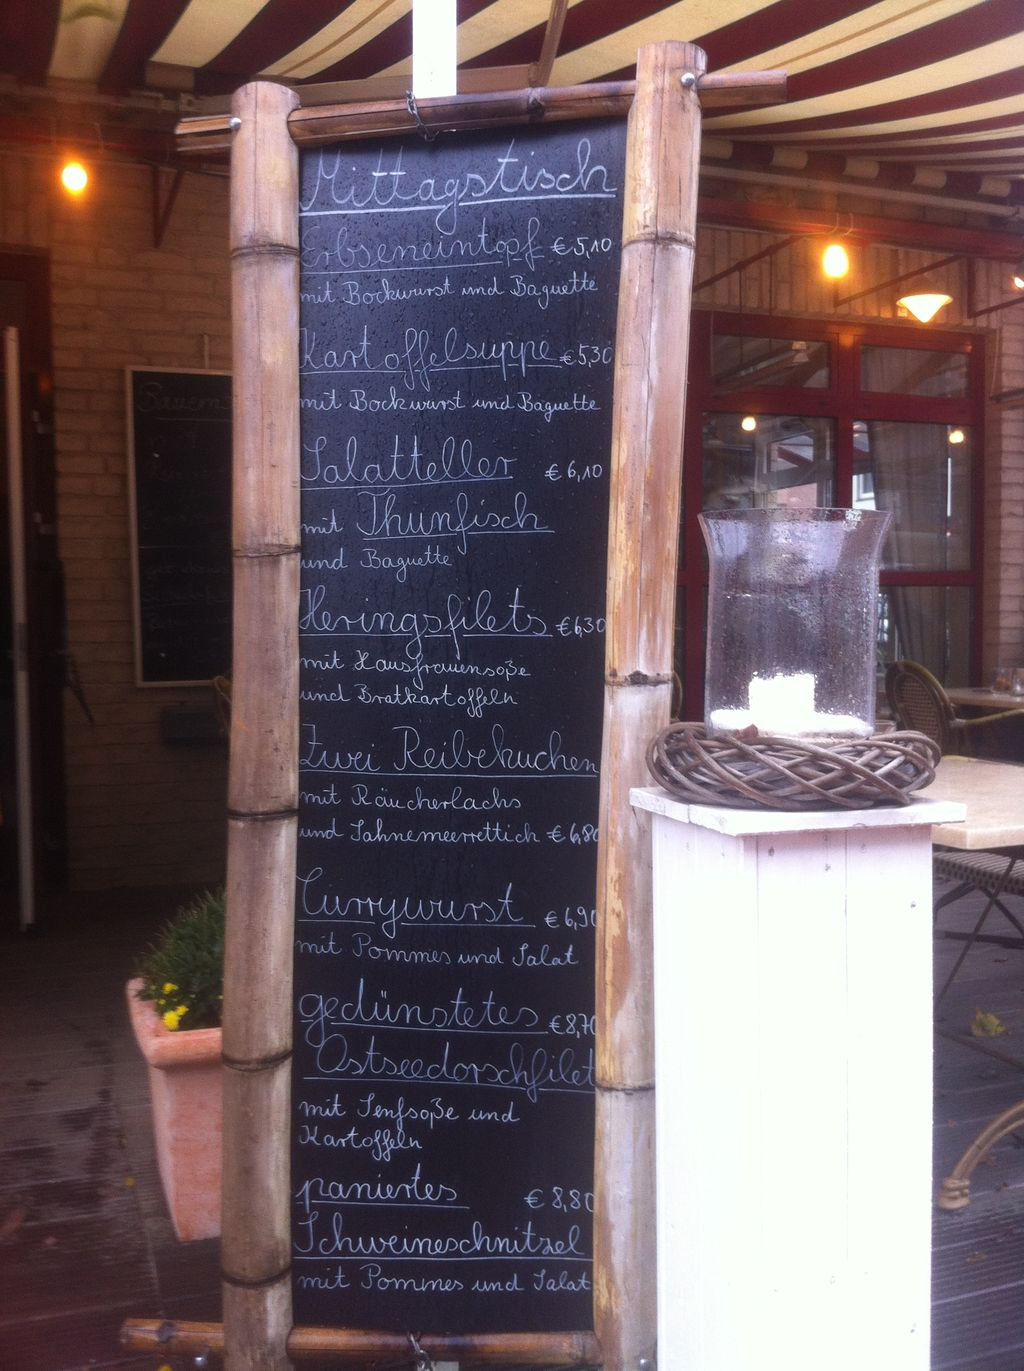 Mittagstisch
Erbseneintopf € 5,10
mit Bockwurst und Baguette
Kartoffelsuppe € 5,30
mit Bockwurst und Baguette
Salatteller € 6,10
mit Thunfisch
und Baguette
Heringsfilets € 6,30
mit Hausfrauensoße
und Bratkartoffeln
Zwei Reibekuchen
mit Räucherlachs
und Sahnemeerrettich € 6,80
Currywurst € 6,90
mit Pommes und Salat
gedünstetes € 8,70
Ostseedorschfilet
mit Senfsoße und
Kartoffeln
paniertes € 8,80
Schweineschnitzel
mit Pommes und Salat